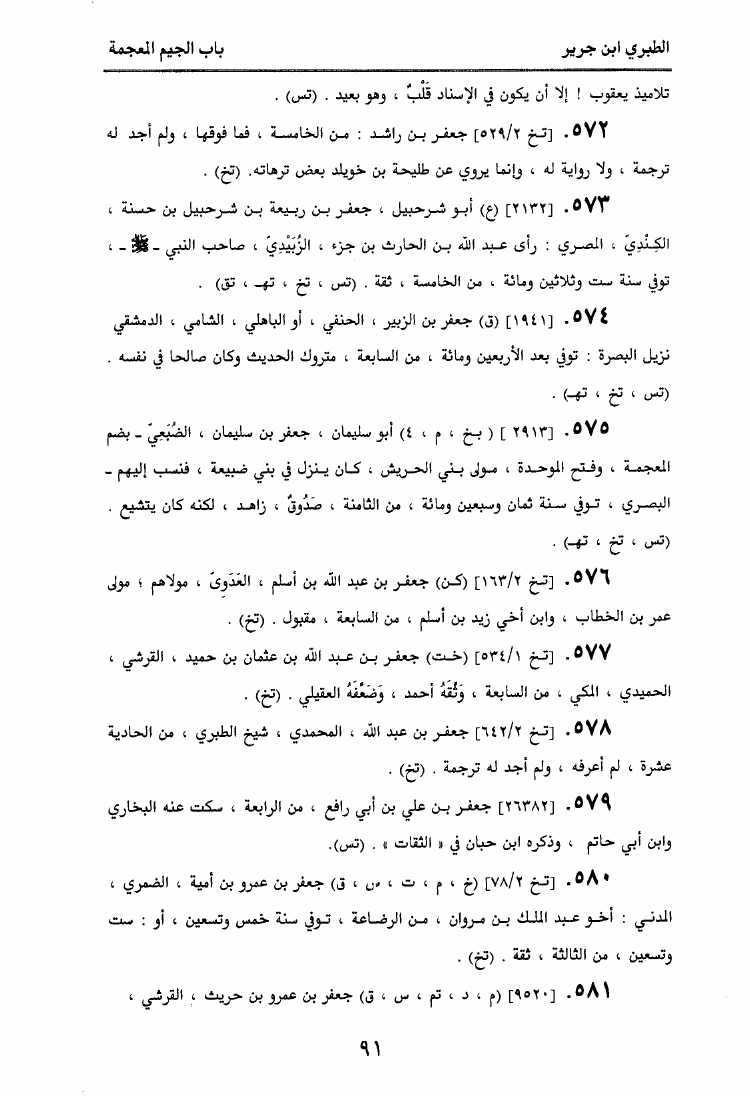 الطبري ابن جرير
باب الجيم المعجمة
تلاميذ يعقوب ! إلا أن يكون في الإسناد قَلْبٌ ، وهو بعيد . (تس) .
٥٧٢. [تخ ٥٢٩/٢] جعفر بن راشد : من الخامسة ، فما فوقها ، ولم أجد له
ترجمة ، ولا رواية له ، وإنما يروي عن طليحة بن خويلد بعض ترهاته. (تخ) .
٥٧٣. [٢١٣٢] (ع) أبو شرحبيل ، جعفر بن ربيعة بن شرحبيل بن حسنة ،
الكِنْدِيّ ، المصري : رأى عبد الله بن الحارث بن جزء ، الزُبَيْدِيّ ، صاحب النبي ـ ﷺ ـ ،
توفي سنة ست وثلاثين ومائة ، من الخامسة ، ثقة . (تس ، تخ ، تهـ ، تق) .
٥٧٤. [١٩٤١] (ق) جعفر بن الزبير ، الحنفي ، أو الباهلي ، الشامي ، الدمشقي
نزيل البصرة : توفي بعد الأربعين ومائة ، من السابعة ، متروك الحديث وكان صالحا في نفسه .
(تس ، تخ ، تهـ) .
٥٧٥. [٢٩١٣ ] ( بخ ، م ، ٤) أبو سليمان ، جعفر بن سليمان ، الضُبَعِيّ ـ بضم
المعجمة ، وفتح الموحدة ، مولى بني الحريش ، كان ينزل في بني ضبيعة ، فنسب إليهم ـ
البصري ، توفي سنة ثمان وسبعين ومائة ، من الثامنة ، صَدُوقٌ ، زاهد ، لكنه كان يتشيع .
(تس ، تخ ، تهـ) .
٥٧٦. [تخ ١٦٣/٢] (كن) جعفر بن عبد الله بن أسلم ، العَدَوِىّ ، مولاهم ؛ مولى
عمر بن الخطاب ، وابن أخي زيد بن أسلم ، من السابعة ، مقبول . (تخ) .
٥٧٧. [تخ ٥٣٤/١] (خت) جعفر بن عبد الله بن عثمان بن حميد ، القرشي ،
الحميدي ، المكي ، من السابعة ، وَثَّقَهُ أحمد ، وَضَعَّفَهُ العقيلي . (تخ) .
٥٧٨. [تخ ٦٤٢/٢] جعفر بن عبد الله ، المحمدي ، شيخ الطبري ، من الحادية
عشرة ، لم أعرفه ، ولم أجد له ترجمة . (تخ) .
٥٧٩. [٢٦٣٨٢] جعفر بن علي بن أبي رافع ، من الرابعة ، سكت عنه البخاري
وابن أبي حاتم ، وذكره ابن حبان في « الثقات » . (تس).
٥٨٠. [تخ ٧٨/٢] (خ ، م ، ت ، س ، ق) جعفر بن عمرو بن أمية ، الضمري ،
المدني : أخو عبد الملك بن مروان ، من الرضاعة ، توفي سنة خمس وتسعين ، أو : ست
وتسعين ، من الثالثة ، ثقة . (تخ) .
٥٨١. [٩٥٢٠] (م ، د ، تم ، س ، ق) جعفر بن عمرو بن حريث ، القرشي ،
٩١